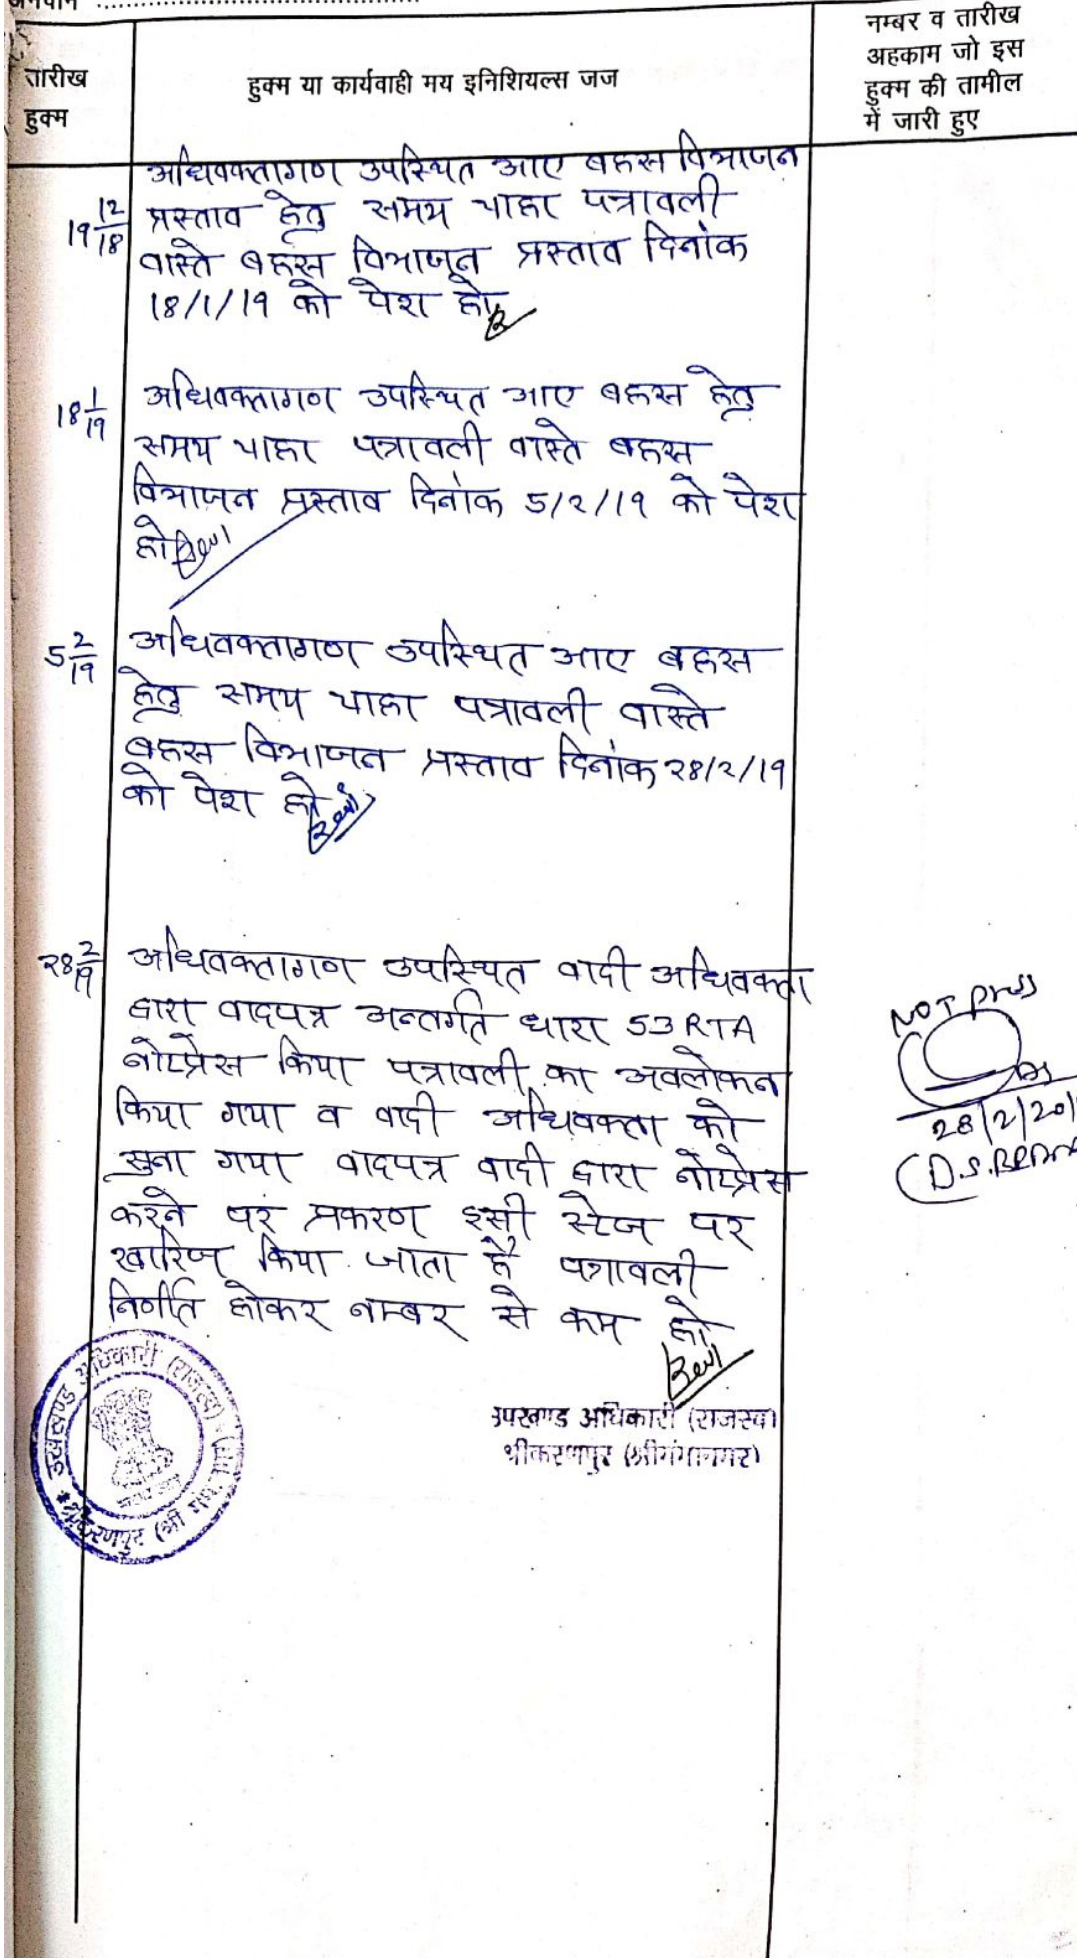 तारीख
हुक्म
हुक्म या कार्यवाही मय इनिशियल्स जज
नम्बर व तारीख
अहकाम जो इस
हुक्म की तामील
में जारी हुए
19 12/18
अधिवक्तागण उपस्थित आए बहस विभाजन
प्रस्ताव हेतु समय चाहा पत्रावली
वास्ते बहस विभाजन प्रस्ताव दिनांक
18/1/19 को पेश हो
18 1/19
अधिवक्तागण उपस्थित आए बहस हेतु
समय चाहा पत्रावली वास्ते बहस
विभाजन प्रस्ताव दिनांक 5/2/19 को पेश
हो
5 2/19
अधिवक्तागण उपस्थित आए बहस
हेतु समय चाहा पत्रावली वास्ते
बहस विभाजन प्रस्ताव दिनांक 28/2/19
को पेश हो
28 2/19
अधिवक्तागण उपस्थित वादी अधिवक्ता
द्वारा वादपत्र अन्तर्गत धारा 53 RTA
नोटप्रेस किया पत्रावली का अवलोकन
किया गया व वादी अधिवक्ता को
सुना गया वादपत्र वादी द्वारा नोटप्रेस
करने पर प्रकरण इसी स्टेज पर
खारिज किया जाता है पत्रावली
निर्णीत होकर नम्बर से कम हो
NOT press
28/2/201
(D.S.
उपखण्ड अधिकारी (राजस्व)
श्रीकरणपुर (श्रीगंगानगर)
उपखण्ड अधिकारी (राजस्व)
श्रीकरणपुर (श्री